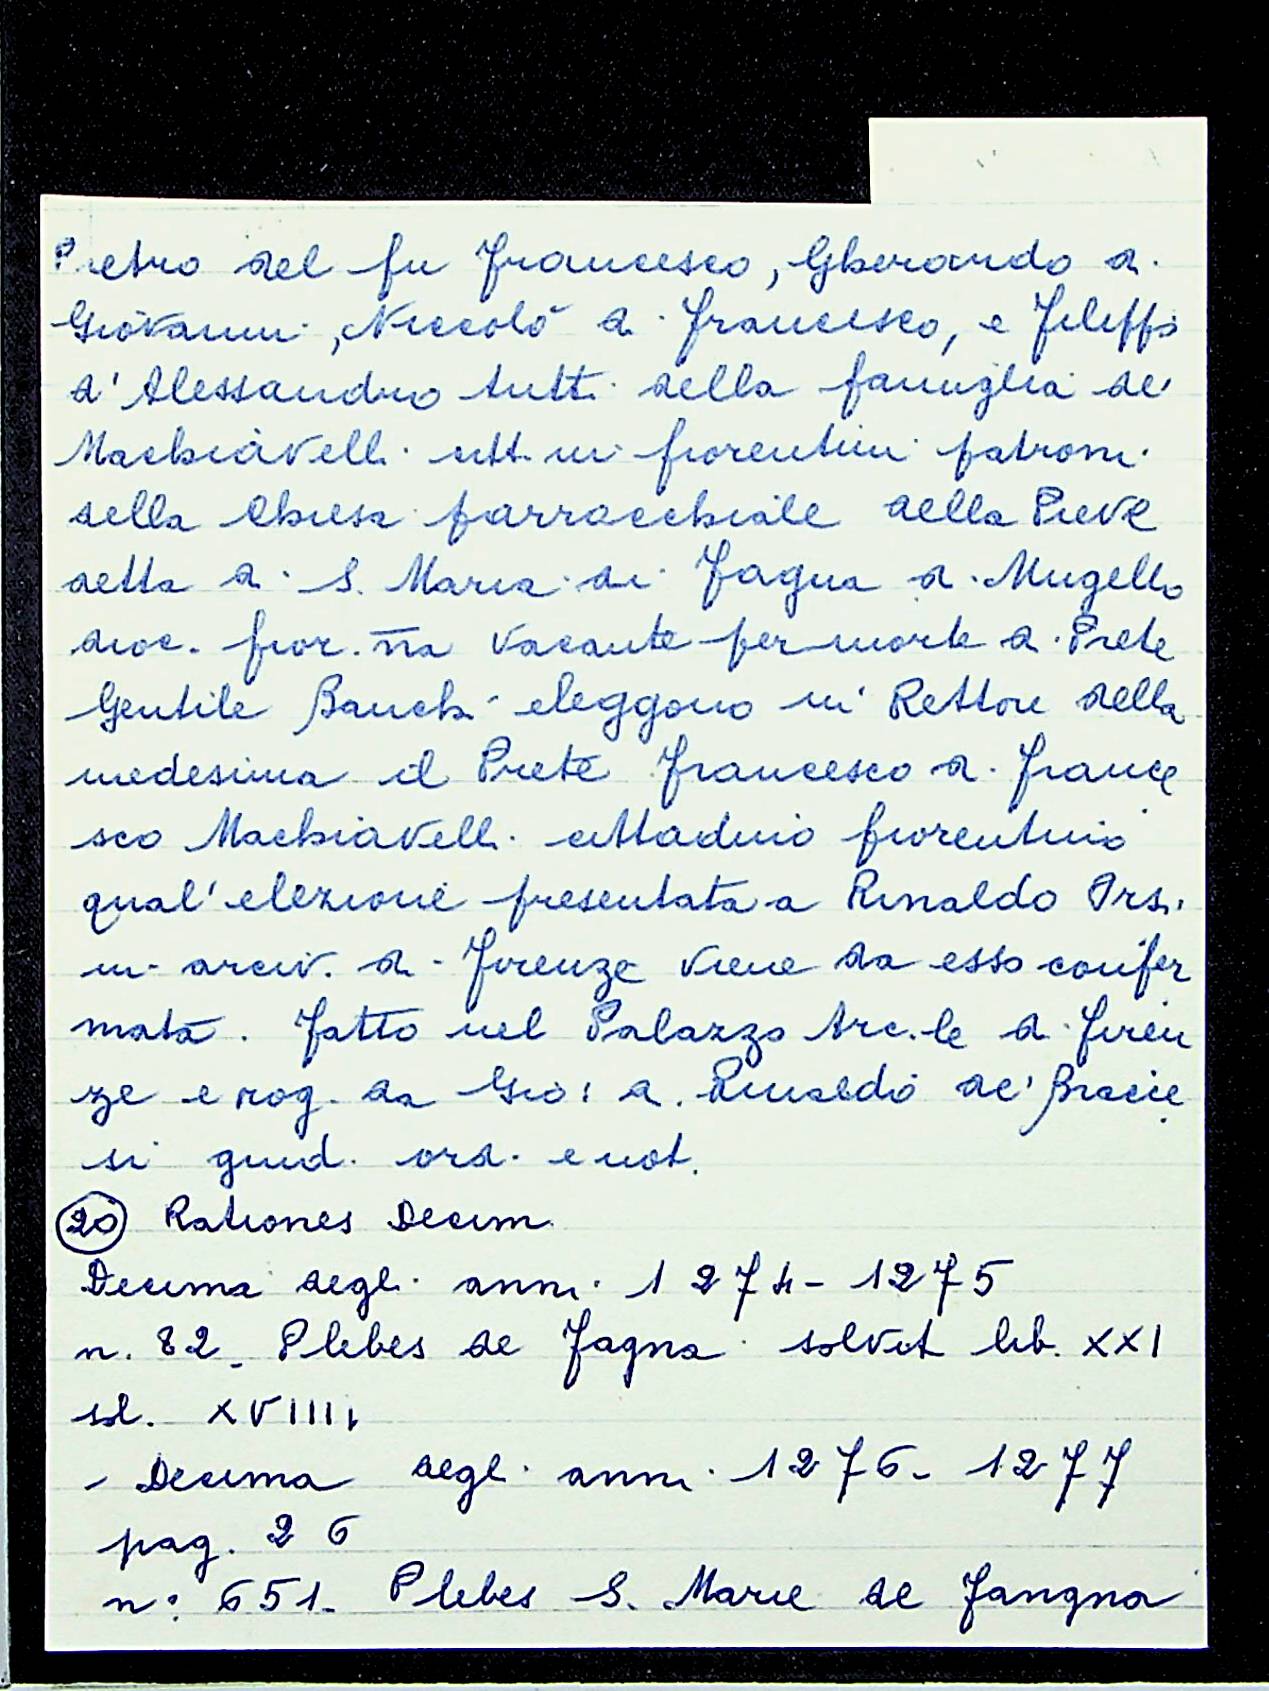 Pietro del fu Francesco, Gherardo di
Giovanni, Niccolò di Francesco, e Filippo
d'Alessandro tutti della famiglia de'
Machiavelli citt.ni fiorentini patroni
della Chiesa parrocchiale della Pieve
detta di S. Maria di Fagna di Mugello
dioc. fior.na vacante per morte di Prete
Gentile Banchi eleggono in Rettore della
medesima il Prete Francesco di France
sco Machiavelli cittadino fiorentino
qual'elezione presentata a Rinaldo Orsi
ni arciv. di Firenze viene da esso confer
mata. Fatto nel Palazzo Arc.le di Firen
ze e rog. da Gio: di Rinaldo de' Bracie
si giud. ord. e not.
20 Rationes Decim
Decima degli anni 1274-1275
n. 82_ Plebes de Fagna solvit lib. XXI
sol. XVIIII
- Decima degli anni 1276-1277
pag. 26
n: 651_ Plebes S. Marie de Fangna